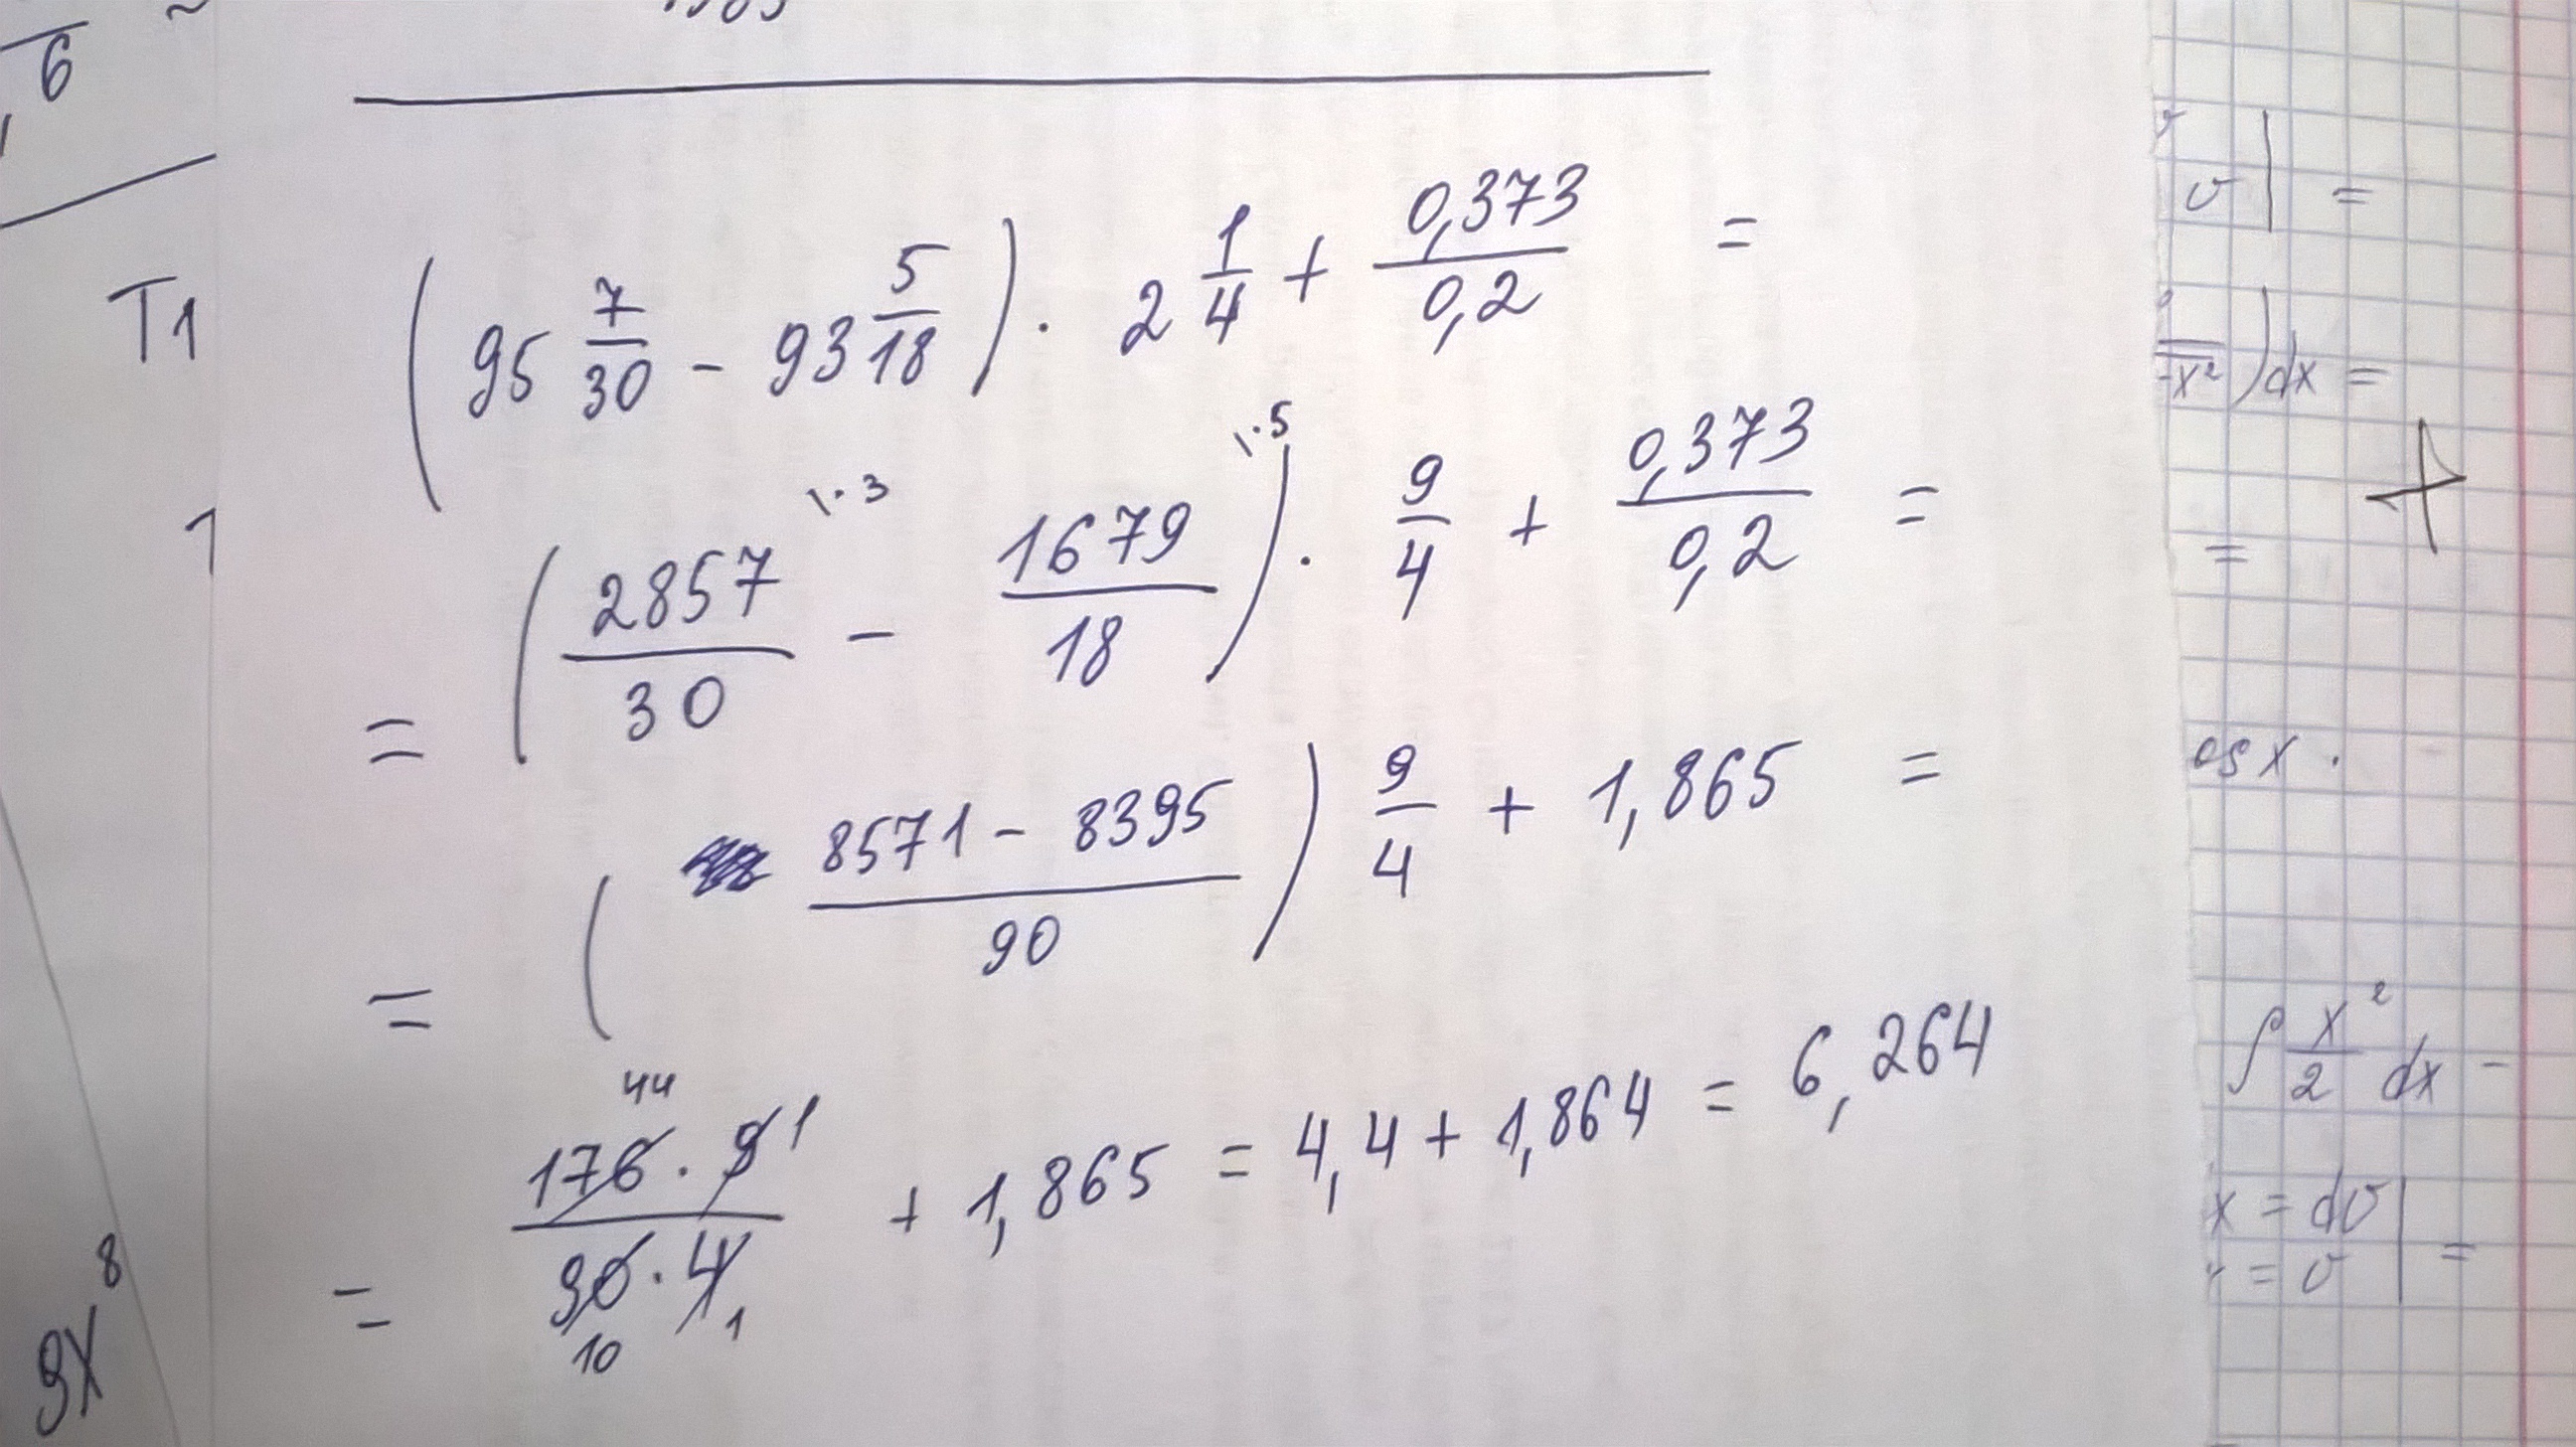 6
T1 (95 7/30 - 93 5/18) · 2 1/4 + 0,373/0,2 =
1
= (2857/30 \·3 - 1679/18 \·5) · 9/4 + 0,373/0,2 =
= ( (8571 - 8395)/90 ) 9/4 + 1,865 =
= (176 · 9)/(90 · 4) + 1,865 = 4,4 + 1,864 = 6,264
44 1
10 1
9x^8
v | =
-x²) dx =
=
os x .
∫ x²/2 dx -
x = dv
= v | =